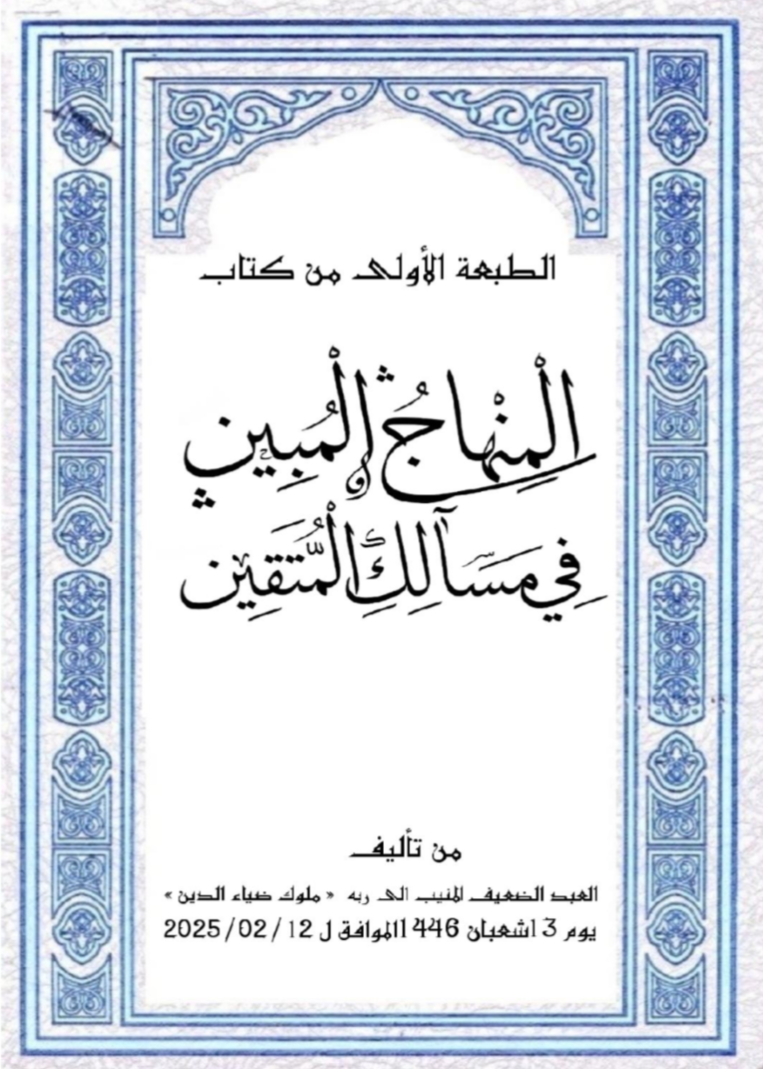 الطبعة الأولى من كتاب
الْمِنْهَاجُ الْمُبِين
فِي مَسَالِكِ الْمُتَّقِين
من تأليف
العبد الضعيف المنيب الى ربه « ملوك ضياء الدين »
يوم 13 شعبان 1446 الموافق ل 12 / 02 / 2025